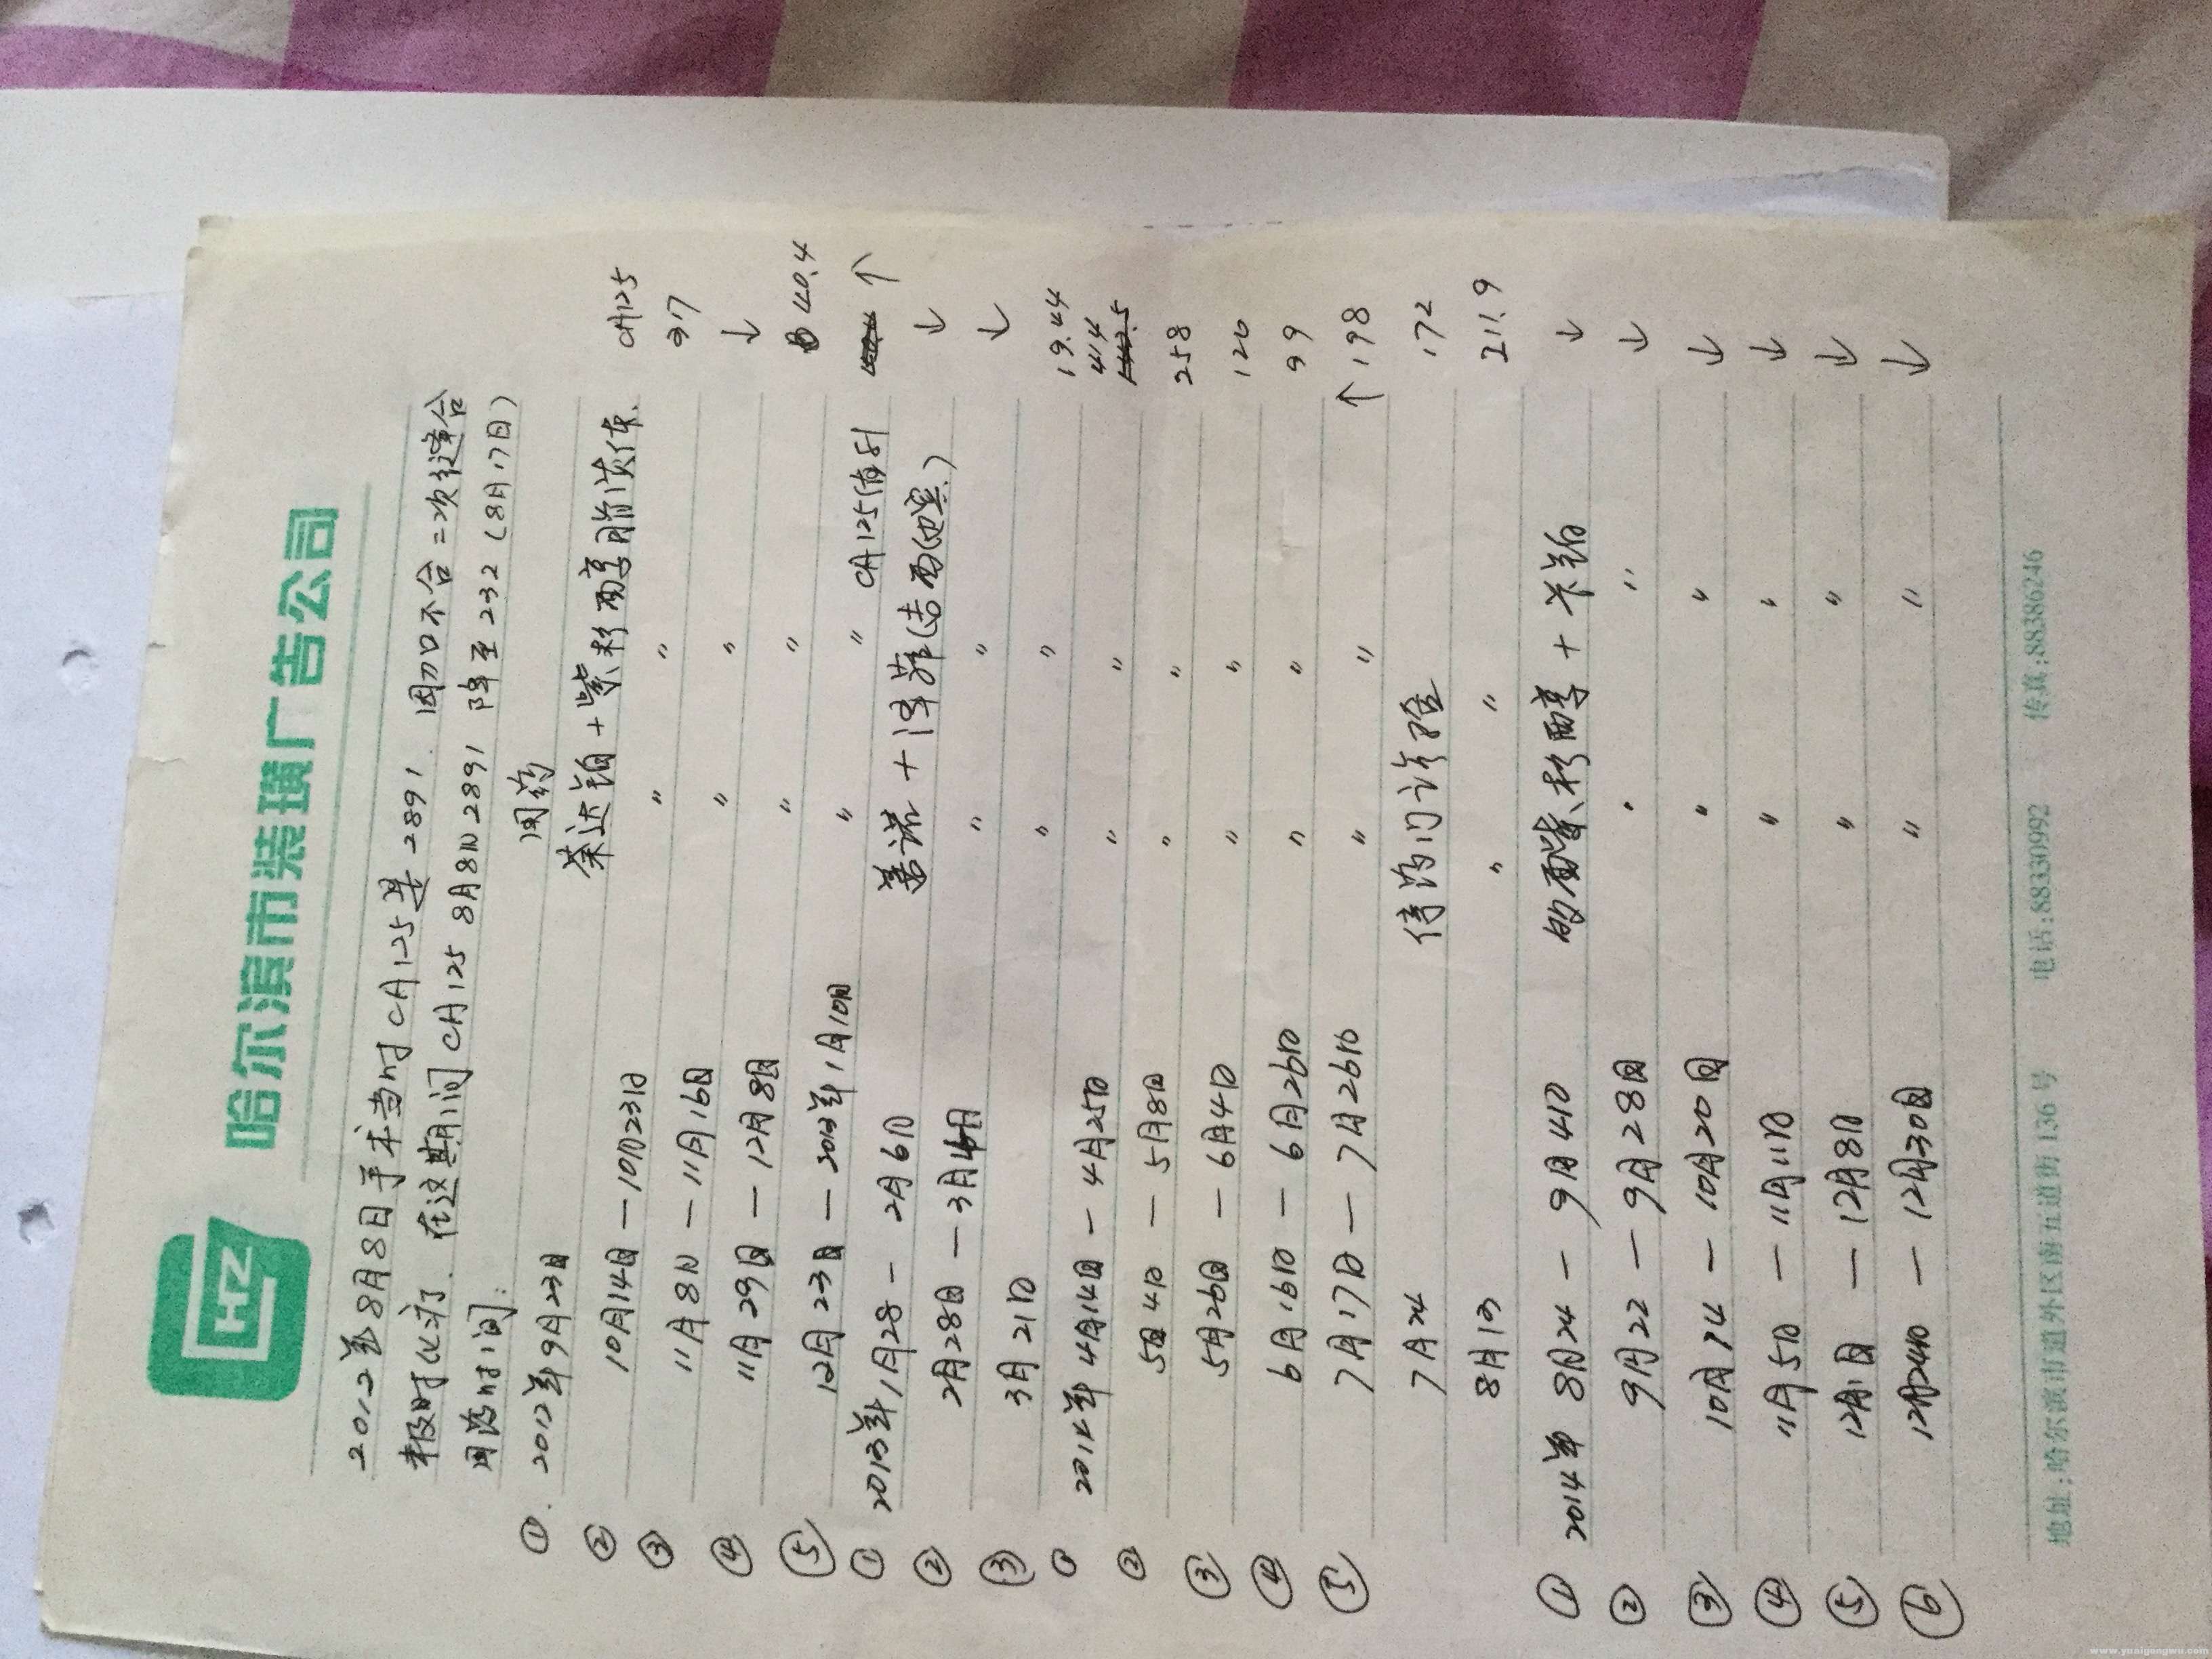 HZ 哈尔滨市装璜广告公司
2012年8月8日手术当时CA125是2891. 因刀口不合二次缝合
未及时化疗. 在这期间CA125 8月8日2891 降至232(8月17日)
用药时间: 用药
① 2012年9月23日 茶达铂+紫杉醇脂质体. CA125
② 10月14日—10月23日 〃 〃 37
③ 11月8日—11月16日 〃 〃 ↓
④ 11月29日—12月8日 〃 〃 40.4
⑤ 12月23日—2013年1月10日 〃 〃 CA125 ↑
① 2013年1月28—2月6日 善诺+泽菲(吉西他滨) ↓
② 2月28日—3月 〃 〃 ↓
③ 3月21日 〃 〃 19.44
① 2014年4月14日—4月25日 〃 〃 414
② 5月4日—5月8日 〃 〃 258
③ 5月26日—6月4日 〃 〃 126
④ 6月16日—6月26日 〃 〃 99
⑤ 7月17日—7月26日 〃 〃 ↑198
7月24 172
8月13 〃 〃 211.9
① 2014年8月24—9月4日 多西紫杉醇+卡铂 ↓
② 9月22—9月28日 〃 〃 ↓
③ 10月14—10月20日 〃 〃 ↓
④ 11月5日—11月11日 〃 〃 ↓
⑤ 12月1日—12月8日 〃 〃 ↓
⑥ 12月24日—12月30日 〃 〃 ↓
地址:哈尔滨市道外区南五道街136号 电话:88330992 传真:88386246
www.yuaigongwu.com